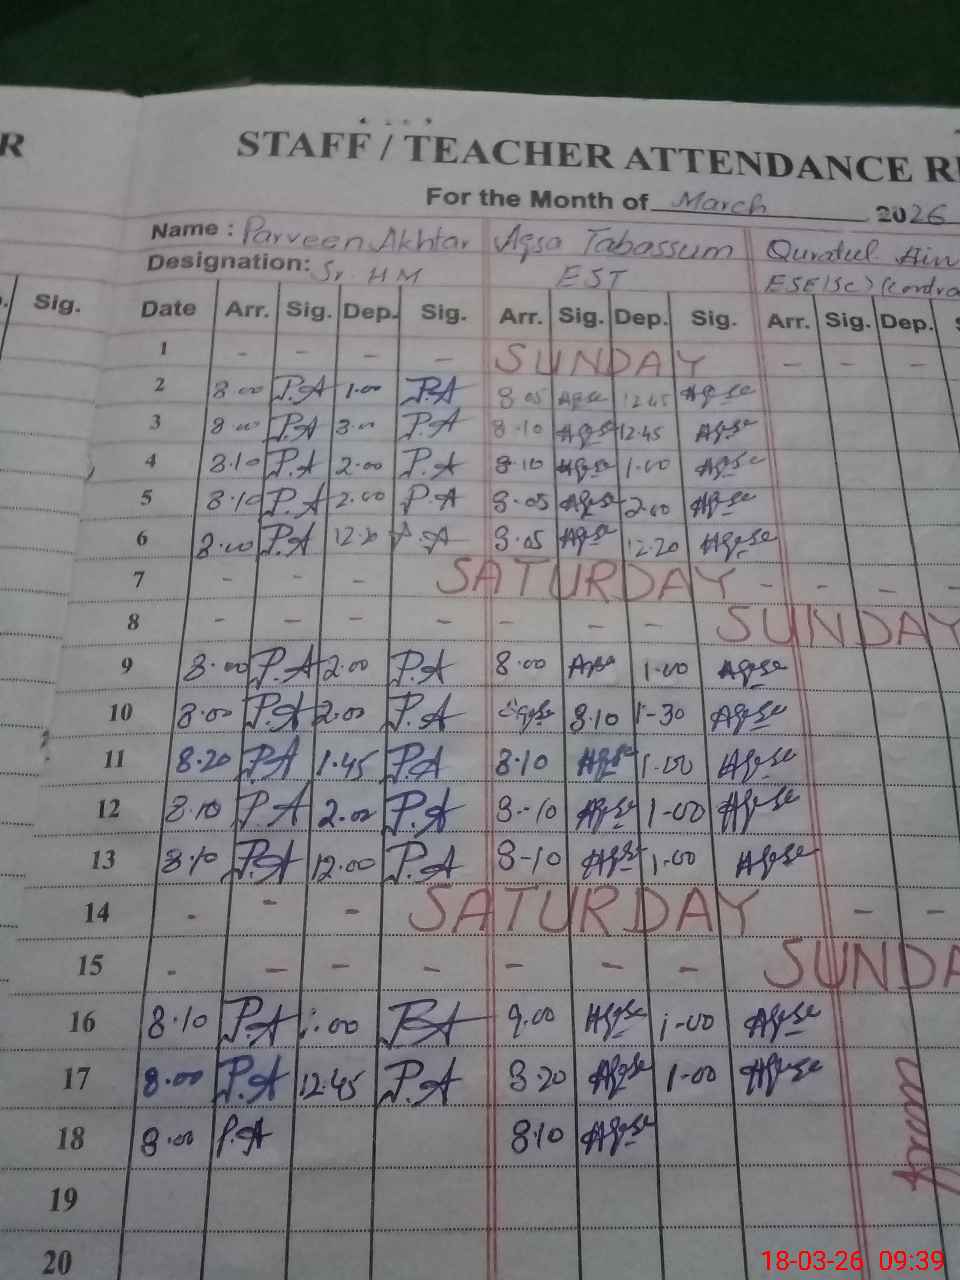 STAFF / TEACHER ATTENDANCE RE
For the Month of March 2026
Name : Parveen Akhtar Aqsa Tabassum Quratul Ain
Designation: Sr. HM EST ESE(Sc)
Sig. Date Arr. Sig. Dep. Sig. Arr. Sig. Dep. Sig. Arr. Sig. Dep.
1 - - - - SUNDAY - - -
2 8.00 P.A 1.00 P.A 8.05 Aqsa 12.45 Aqsa
3 8.00 P.A 3.00 P.A 8.10 Aqsa 12.45 Aqsa
4 8.10 P.A 2.00 P.A 8.10 Aqsa 1.00 Aqsa
5 8.10 P.A 2.00 P.A 8.05 Aqsa 2.00 Aqsa
6 8.00 P.A 12.20 P.A 8.05 Aqsa 12.20 Aqsa
7 - - - SATURDAY - - - -
8 - - - - - - - SUNDAY
9 8.00 P.A 2.00 P.A 8.00 Aqsa 1.00 Aqsa
10 8.00 P.A 2.00 P.A Aqsa 8.10 1-30 Aqsa
11 8.20 P.A 1.45 P.A 8.10 Aqsa 1.00 Aqsa
12 8.10 P.A 2.00 P.A 8-10 Aqsa 1-00 Aqsa
13 8.10 P.A 12.00 P.A 8-10 Aqsa 1.00 Aqsa
14 - - - SATURDAY - -
15 - - - - - - - SUNDA
16 8.10 P.A 1.00 P.A 9.00 Aqsa 1-00 Aqsa
17 8.00 P.A 12.45 P.A 8.20 Aqsa 1-00 Aqsa
18 8.00 P.A 8.10 Aqsa
19
20
18-03-26 09:39